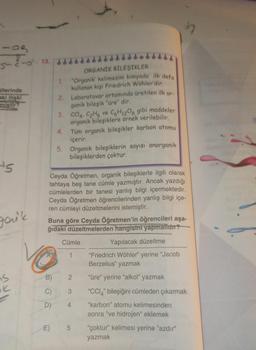 13.
ORGANİK BİLEŞİKLER
1. "Organik" kelimesini kimyada ilk defa
kullanan kişi Friedrich Wöhler'dir.
2. Laboratuvar ortamında üretilen ilk or-
ganik bileşik "üre" dir.
3. CO₂, C₂H₆ ve C₆H₁₂O₆ gibi maddeler
organik bileşiklere örnek verilebilir.
4. Tüm organik bileşikler karbon atomu
içerir.
5. Organik bileşiklerin sayısı anorganik
bileşiklerden çoktur.
Ceyda Öğretmen, organik bileşiklerle ilgili olarak
tahtaya beş tane cümle yazmıştır. Ancak yazdığı
cümlelerden bir tanesi yanlış bilgi içermektedir.
Ceyda Öğretmen öğrencilerinden yanlış bilgi içe-
ren cümleyi düzeltmelerini istemiştir.
Buna göre Ceyda Öğretmen'in öğrencileri aşa-
ğıdaki düzeltmelerden hangisini yapmalıdır?
Cümle Yapılacak düzeltme
1 "Friedrich Wöhler" yerine "Jacob
Berzelius" yazmak
B) 2 "üre" yerine "alkol" yazmak
C) 3 "CO₂" bileşiğini cümleden çıkarmak
D) 4 "karbon" atomu kelimesinden
sonra "ve hidrojen" eklemek
E) 5 "çoktur" kelimesi yerine "azdır"
yazmak